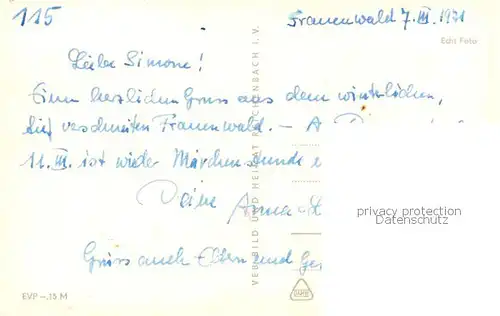 115
Frauenwald 7. III. 1971
Echt Foto
Liebe Simone!
Einen herzlichen Gruss aus dem winterlichen,
tief verschneiten Frauenwald. – A
11. III. ist wieder Märchenstunde
Deine Anna
Grüss auch Eltern und Ges
VEB BILD UND HEIMAT REICHENBACH I. V.
privacy protection
Datenschutz
EVP –.15 M